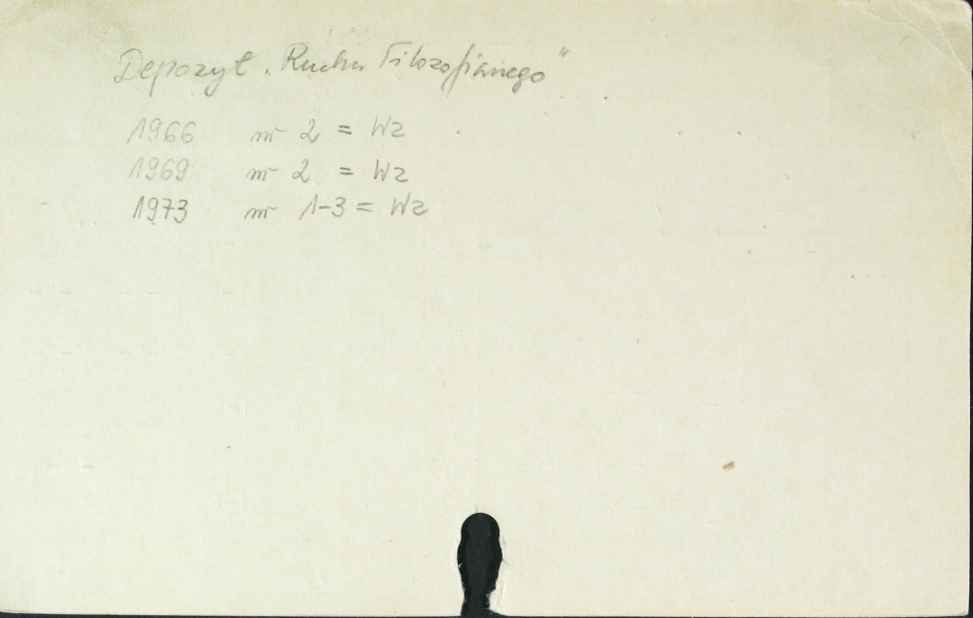 Depozyt „Ruchu Filozoficznego"
1966 nr 2 = Wz
1969 nr 2 = Wz
1973 nr 1-3 = Wz